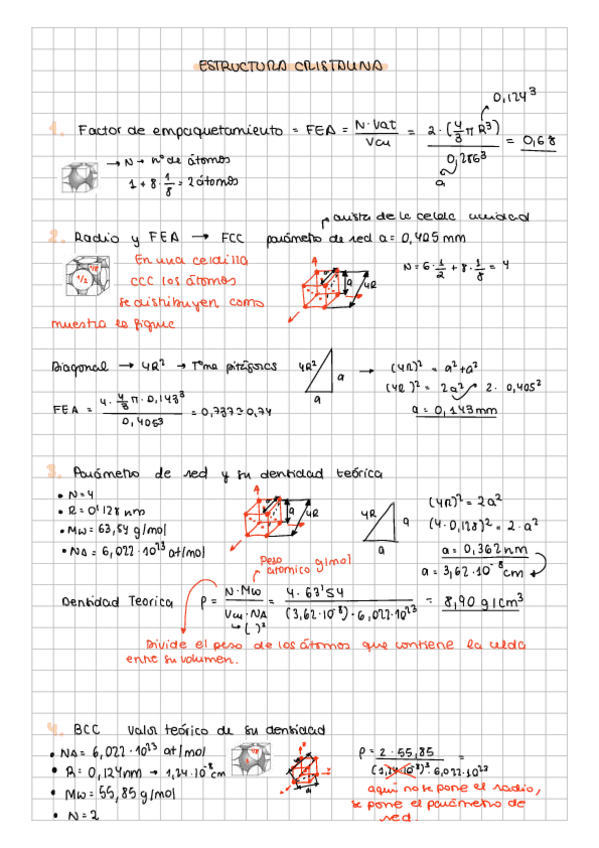 ESTRUCTURA CRISTALINA
0,124³
1. Factor de empaquetamiento = FEA = N·Vat / Vcu = 2·(4/3 π R³) / 0,286³ = 0,68
a
→ N → nº de átomos
1 + 8 · 1/8 = 2 átomos
arista de la celda unidad
2. Radio y FEA → FCC parámetro de red a = 0,405 nm
En una celdilla
CCC los átomos
se distribuyen como
muestra la figura
1/8
1/2
a 4R
N = 6 · 1/2 + 8 · 1/8 = 4
Diagonal → 4R² → Tªma pitágoras
4R² a a
→ (4R)² = a² + a²
(4R)² = 2a² 2 · 0,405²
a = 0,143 nm
FEA = 4 · 4/3 π · 0,143³ / 0,405³ = 0,737 ≅ 0,74
3. Parámetro de red y su densidad teórica
• N = 4
• R = 0'128 nm
• Mw = 63,54 g/mol
• NA = 6,022 · 10²³ at/mol
a 4R
4R a a
(4R)² = 2a²
(4 · 0,128)² = 2 · a²
a = 0,362 nm
a = 3,62 · 10⁻⁸ cm
Peso atómico g/mol
Densidad Teorica ρ = N · Mw / Vcu · NA = 4 · 63'54 / (3,62 · 10⁻⁸) · 6,022 · 10²³ = 8,90 g/cm³
↳ ( )³
Divide el peso de los átomos que contiene la celda
entre su volumen.
4. BCC Valor teórico de su densidad
• NA = 6,022 · 10²³ at/mol
• R = 0,124 nm → 1,24 · 10⁻⁸ cm
• Mw = 55,85 g/mol
• N = 2
ρ = 2 · 55,85 / (1,24 · 10⁻⁸)³ · 6,022 · 10²³ =
aqui no se pone el radio,
se pone el parámetro de
red.